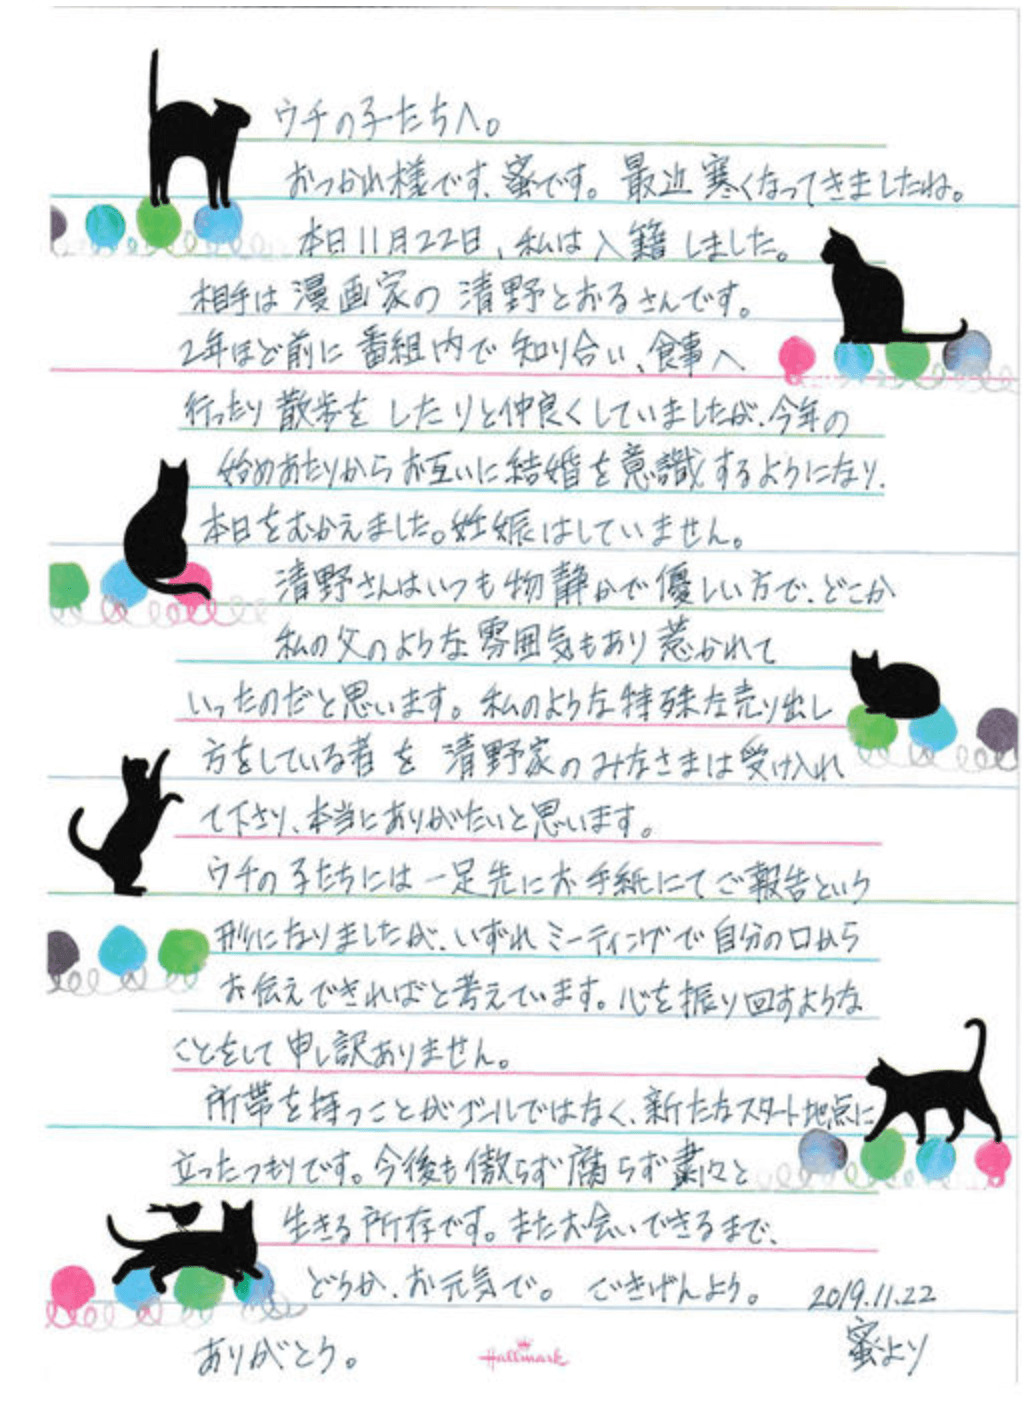 ウチの子たちへ。
おつかれ様です、蜜です。最近寒くなってきましたね。
本日11月22日、私は入籍しました。
相手は漫画家の清野とおるさんです。
2年ほど前に番組内で知り合い、食事へ
行ったり散歩をしたりと仲良くしていましたが、今年の
始めあたりからお互いに結婚を意識するようになり、
本日をむかえました。妊娠はしていません。
清野さんはいつも物静かで優しい方で、どこか
私の父のような雰囲気もあり惹かれて
いったのだと思います。私のような特殊な売り出し
方をしている者を清野家のみなさまは受け入れ
て下さり、本当にありがたいと思います。
ウチの子たちには一足先にお手紙にてご報告という
形になりましたが、いずれミーティングで自分の口から
お伝えできればと考えています。心を振り回すような
ことをして申し訳ありません。
所帯を持つことがゴールではなく、新たなスタート地点に
立ったつもりです。今後も傲らず腐らず粛々と
生きる所存です。またお会いできるまで、
どうか、お元気で。ごきげんよう。 2019.11.22
ありがとう。 Hallmark 蜜より